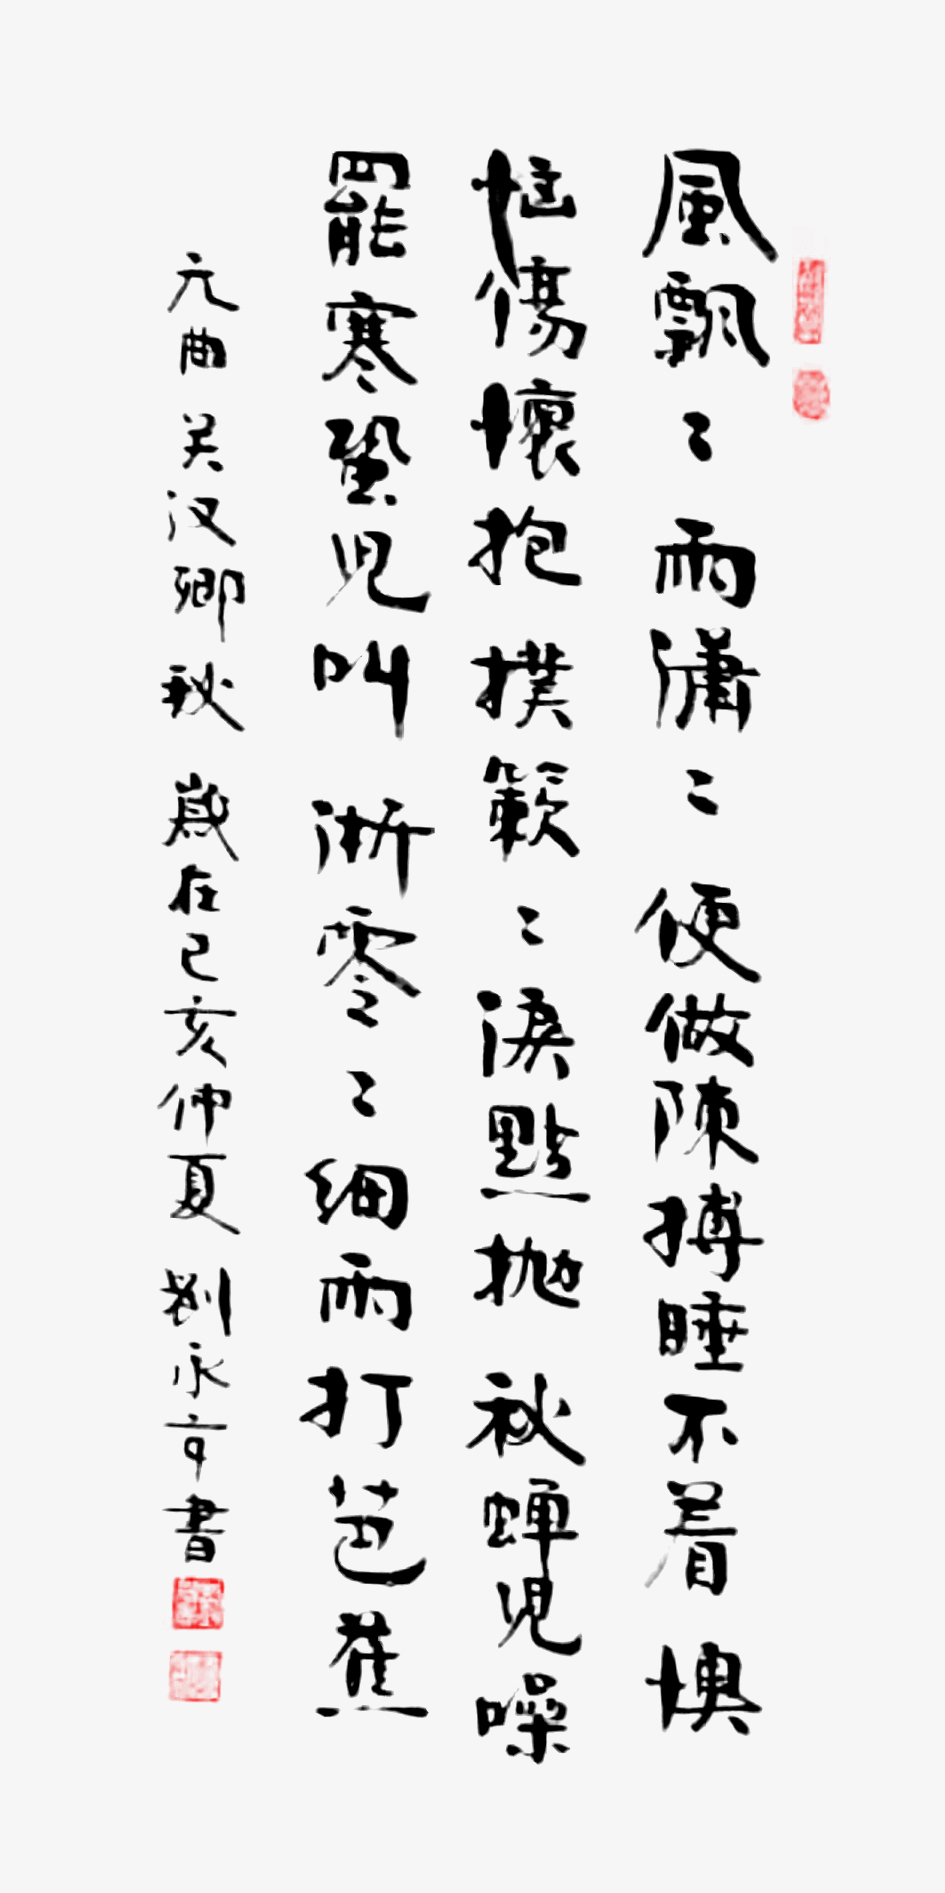 風飄〻雨瀟〻便做陳摶睡不着懊
恼傷懷抱撲簌〻淚點抛秋蟬児噪
罷寒蛩児叫淅零〻細雨打芭蕉
元曲关汉卿秋歲在己亥仲夏劉永亨書